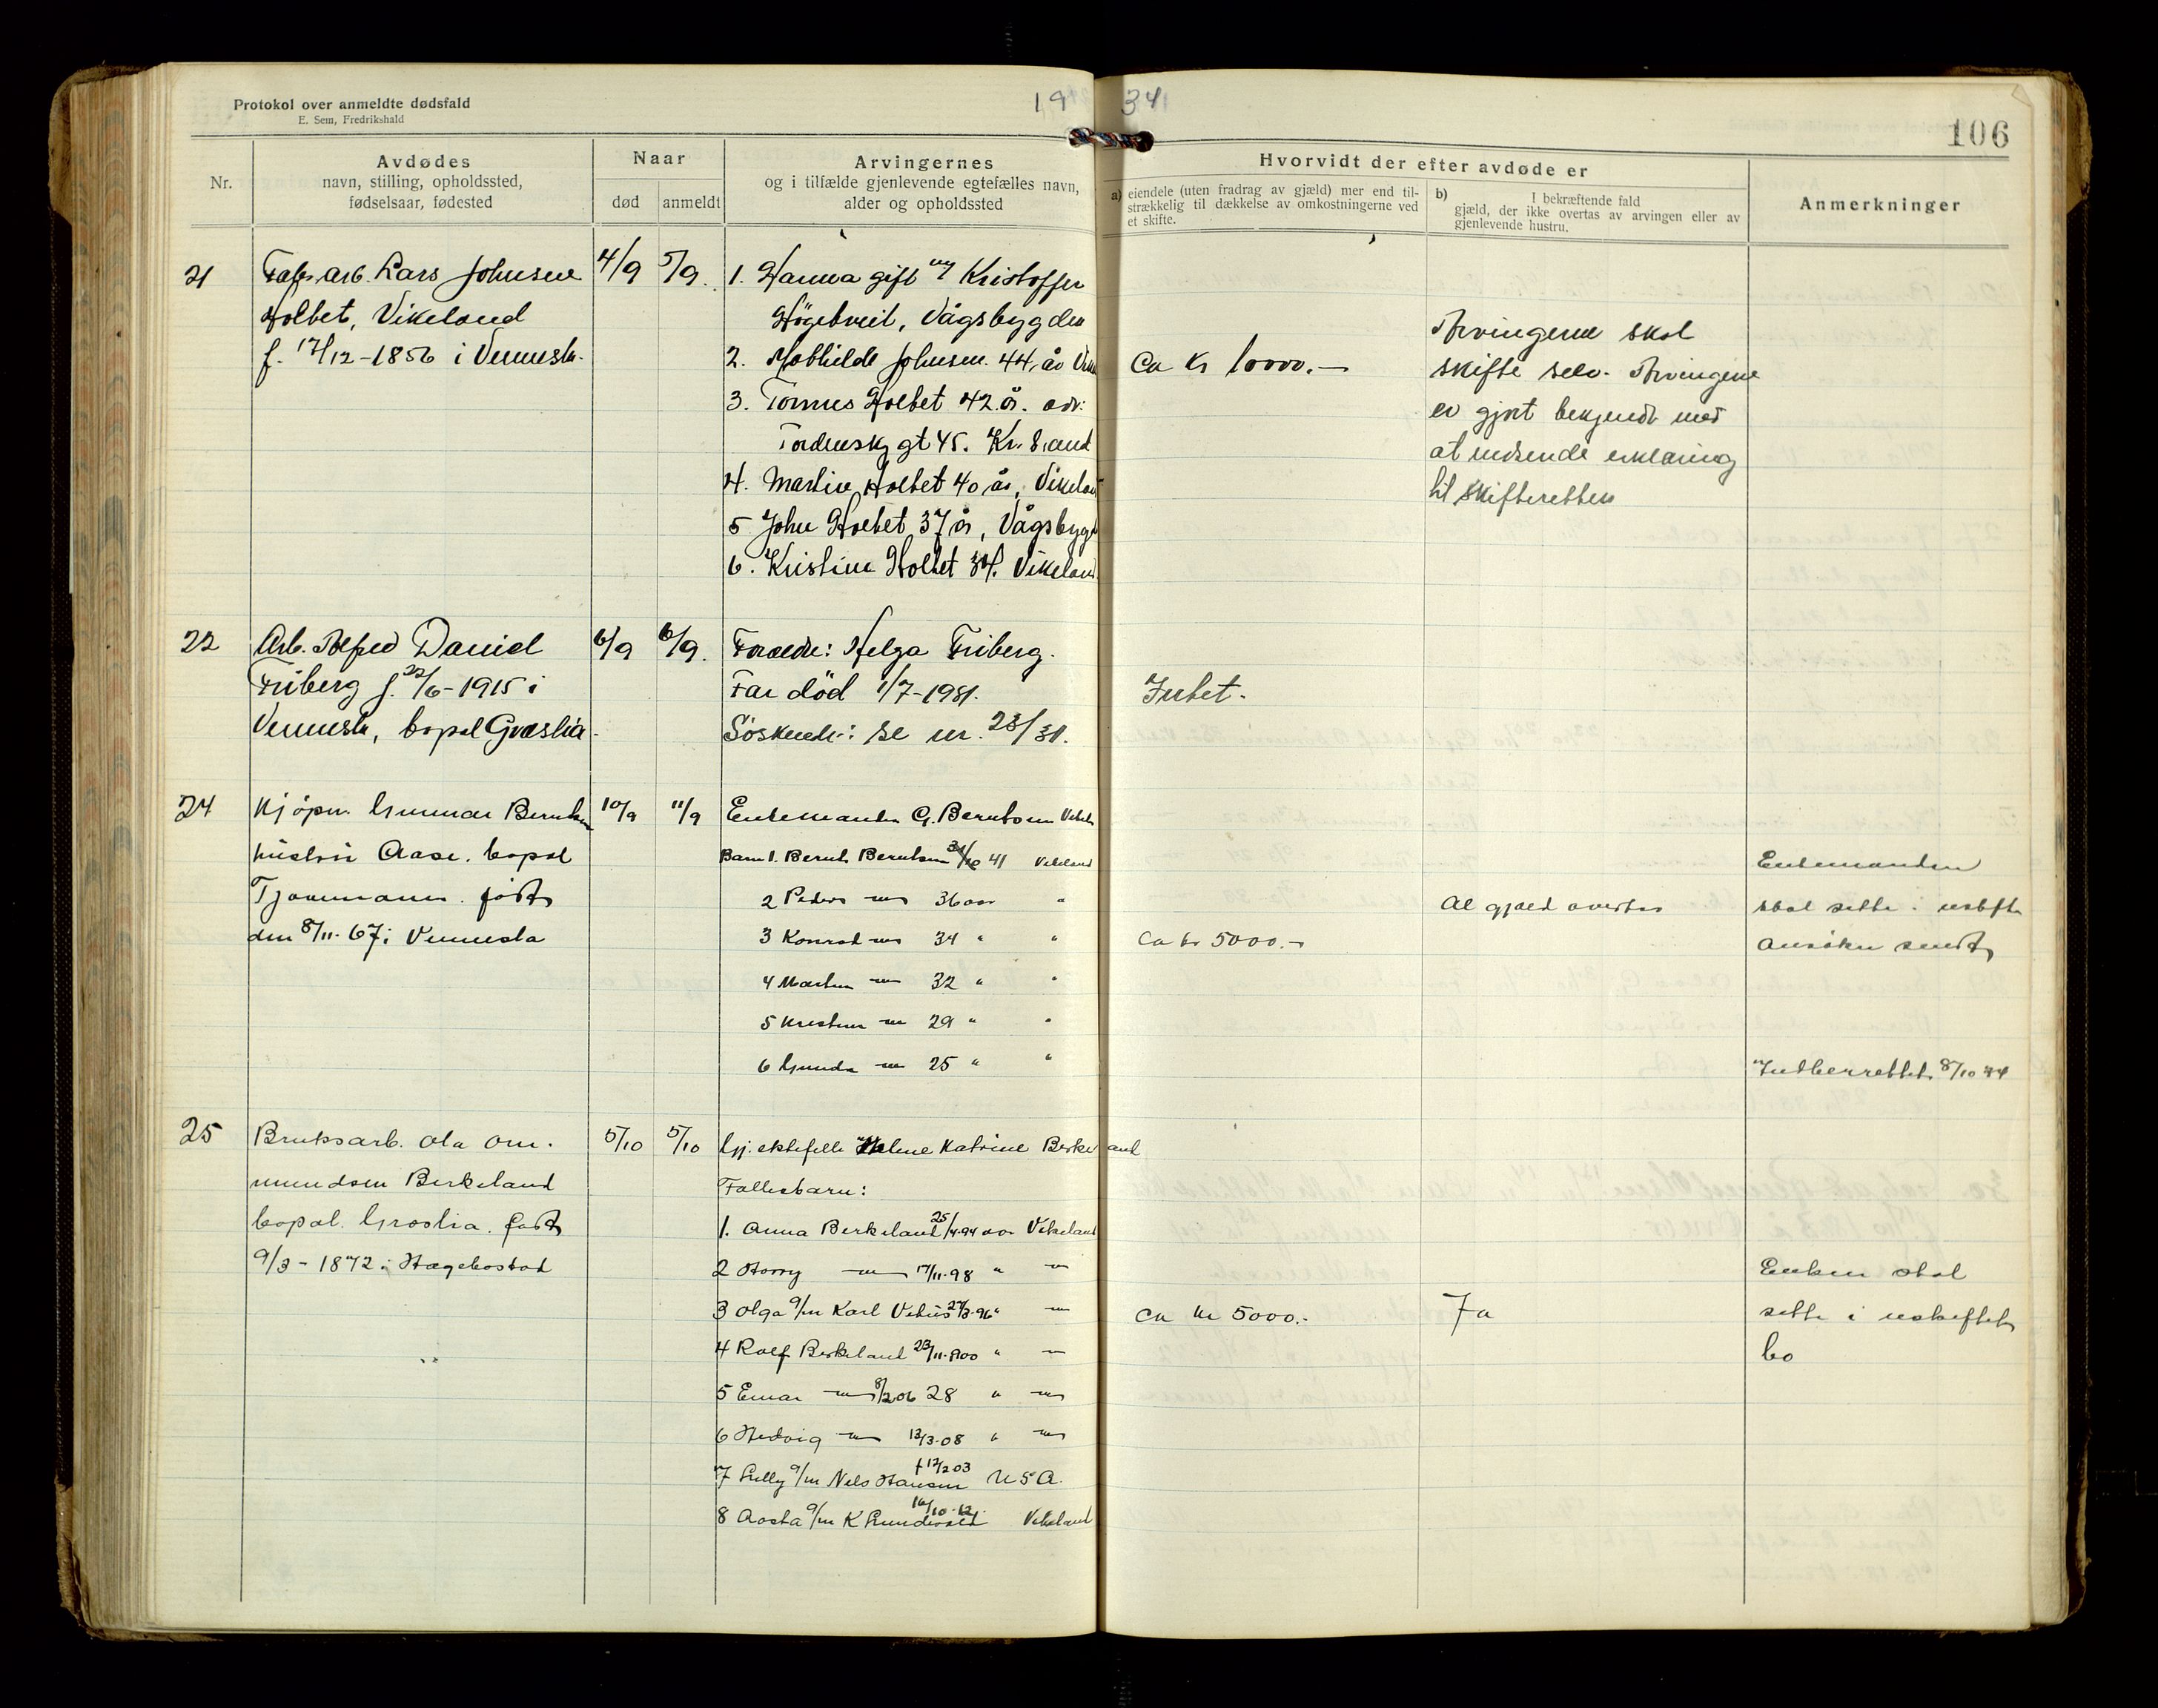 Protokol over anmeldte dødsfald
E. Sem, Fredrikshald
19 34
106
Nr.
Avdødes
navn, stilling, opholdssted,
fødselsaar, fødested
Naar
død
anmeldt
Arvingernes
og i tilfælde gjenlevende egtefælles navn,
alder og opholdssted
Hvorvidt der efter avdøde er
a) eiendele (uten fradrag av gjæld) mer end til-
strækkelig til dækkelse av omkostningerne ved
et skifte.
b) I bekræftende fald
gjæld, der ikke overtas av arvingen eller av
gjenlevende hustru.
Anmerkninger
21
Fabr. arb. Lars Johnsen
Holbet, Vikeland
f. 17/12-1856 i Vennesla.
4/9
5/9.
1. Hanna gift m/ Kristoffer
Vågsbygden
2. Mathilde Johnsen. 44 år
3. Holbet 42 år. adr:
Tordenskj gt 45. Kr. sand
4. Martin Holbet 40 år, Vikeland
5 John Holbet 37 år, Vågsbygd
6. Kristine Holbet 34. Vikeland
Ca Kr 10000.—
Arvingerne skal
skifte selv. Arvingene
er gjort bekjendt med
at indsende erklæring
til skifteretten
22
Arb. Alfred Daniel
Friberg f. 22/6-1915 i
Vennesla, bopel Graslia.
6/9
6/9.
Forældre: Helga Friberg.
Far død 1/7-1931.
Søskende: se nr. 23/31.
Intet.
24
Kjøpm. Gunnar Berntsen
hustru Aase. bopal
født
den 8/11-67 i Vennesla
10/9
11/9
Enkemanden G. Berntsen
Barn 1. Bernt Berntsen 41 Vikeland
2 Peder —"— 36 aar "
3 Konrad —"— 34 " "
4 Martin —"— 32 " "
5 —"— 29 " "
6 Gunda —"— 25 " "
ca kr 5000.—
Al gjæld overtas
Enkemanden
skal sitte i uskifte
Ansøkn sendt
Indberrettet 8/10 34
25
Bruksarb. Ola Om-
mundsen Birkeland
bopal. Groslia. født
9/3-1872 i Hægebostad
5/10
5/10
Gj. ektefelle Helene Katrine Birkeland
Fellesbarn:
1. Anna Birkeland 25/4-94 aar Vikeland
2 Harry —"— 17/11-98 " —"—
3 Olga g/m Karl 27/3-96 " —"—
4 Rolf Birkeland 23/11-1900 " —"—
5 Einar —"— 8/2 06 28 " —"—
6 Hedvig —"— 13/3-08 " —"—
7 Lilly g/m Nils Hansen f 12/2 03 USA.
8 Aasta g/m K 16/10-12. Vikeland
ca kr 5000.-
Ja
Enken skal
sitte i uskiftet
bo